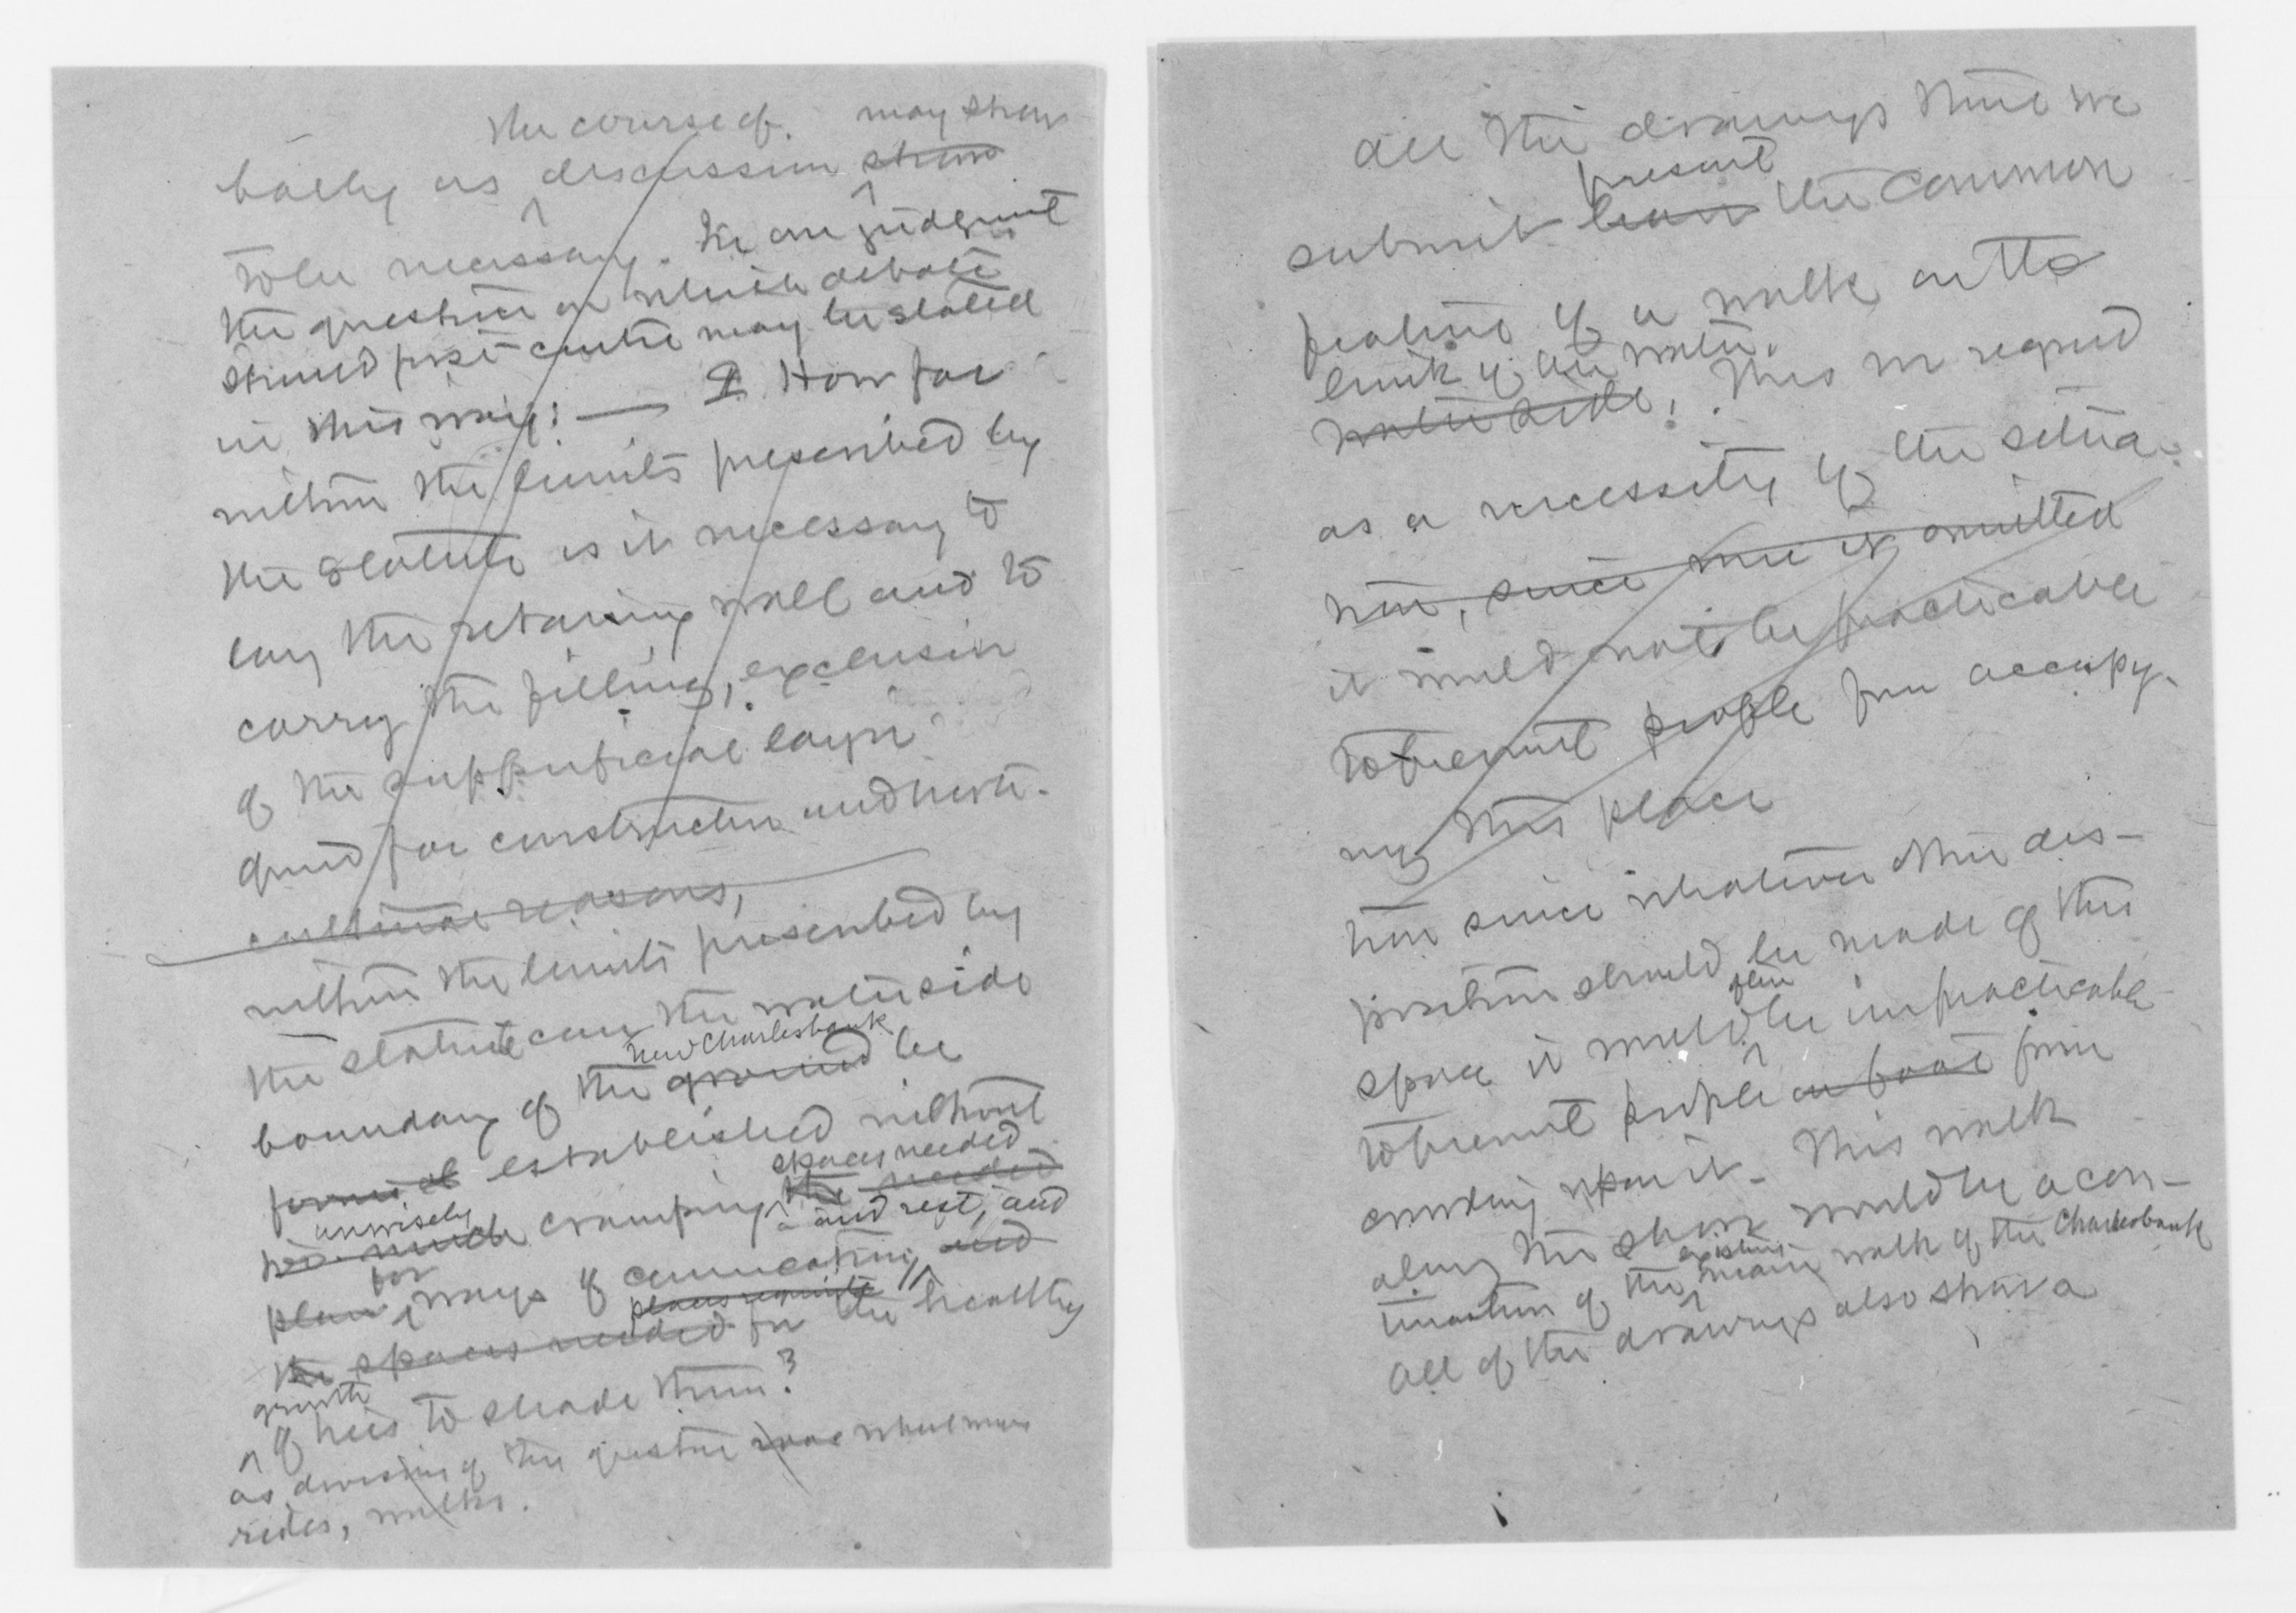 the course of may show
bally as discussion show
to be necessary. In our judgment
the question on which debate
should first centre may be stated
in this way: — How far
within the limits prescribed by
the statute is it necessary to
lay the retaining wall and to
carry the filling, exclusive
of the superficial layer
quired for construction and horti-
cultural reasons,
within the limits prescribed by
the statute can the waterside
new Charlesbank
boundary of the ground be
formed established without
spaces needed
unwisely cramping the needed
too much and rest, and
for
plan, ways of communication and
places requisite
the spaces needed for the healthy
growth
of trees to shade them?
as division of the question what
rides, walks.
All the drawings that we
present
submit the common
feature of a walk at the
brink of the water.
water side. This we regard
as a necessity of the situa-
tion, since were it omitted
it would not be practicable
to prevent people from occupy-
ing this place
tion since whatever other dis-
position should be made of this
space it would be impracticable
to prevent people on foot from
crowding upon it. This walk
along the shore would be a con-
existing
tinuation of the main walk of the Charlesbank
All of the drawings also show a